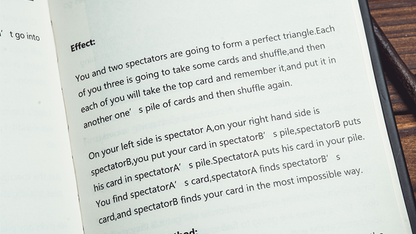 ' t go into
Effect:
You and two spectators are going to form a perfect triangle.Each
of you three is going to take some cards and shuffle,and then
each of you will take the top card and remember it,and put it in
another one' s pile of cards and then shuffle again.
On your left side is spectator A,on your right hand side is
spectatorB,you put your card in spectatorB' s pile,spectatorB puts
his card in spectatorA' s pile.SpectatorA puts his card in your pile.
You find spectatorA' s card,spectatorA finds spectatorB' s
card,and spectatorB finds your card in the most impossible way.